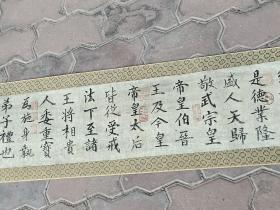 是德業隆
盛人天歸
敬武宗皇
帝皇伯晉
王及今皇
帝皇太后
皆從受戒
法下至諸
王將相貴
人委重寶
為施身執
弟子禮也